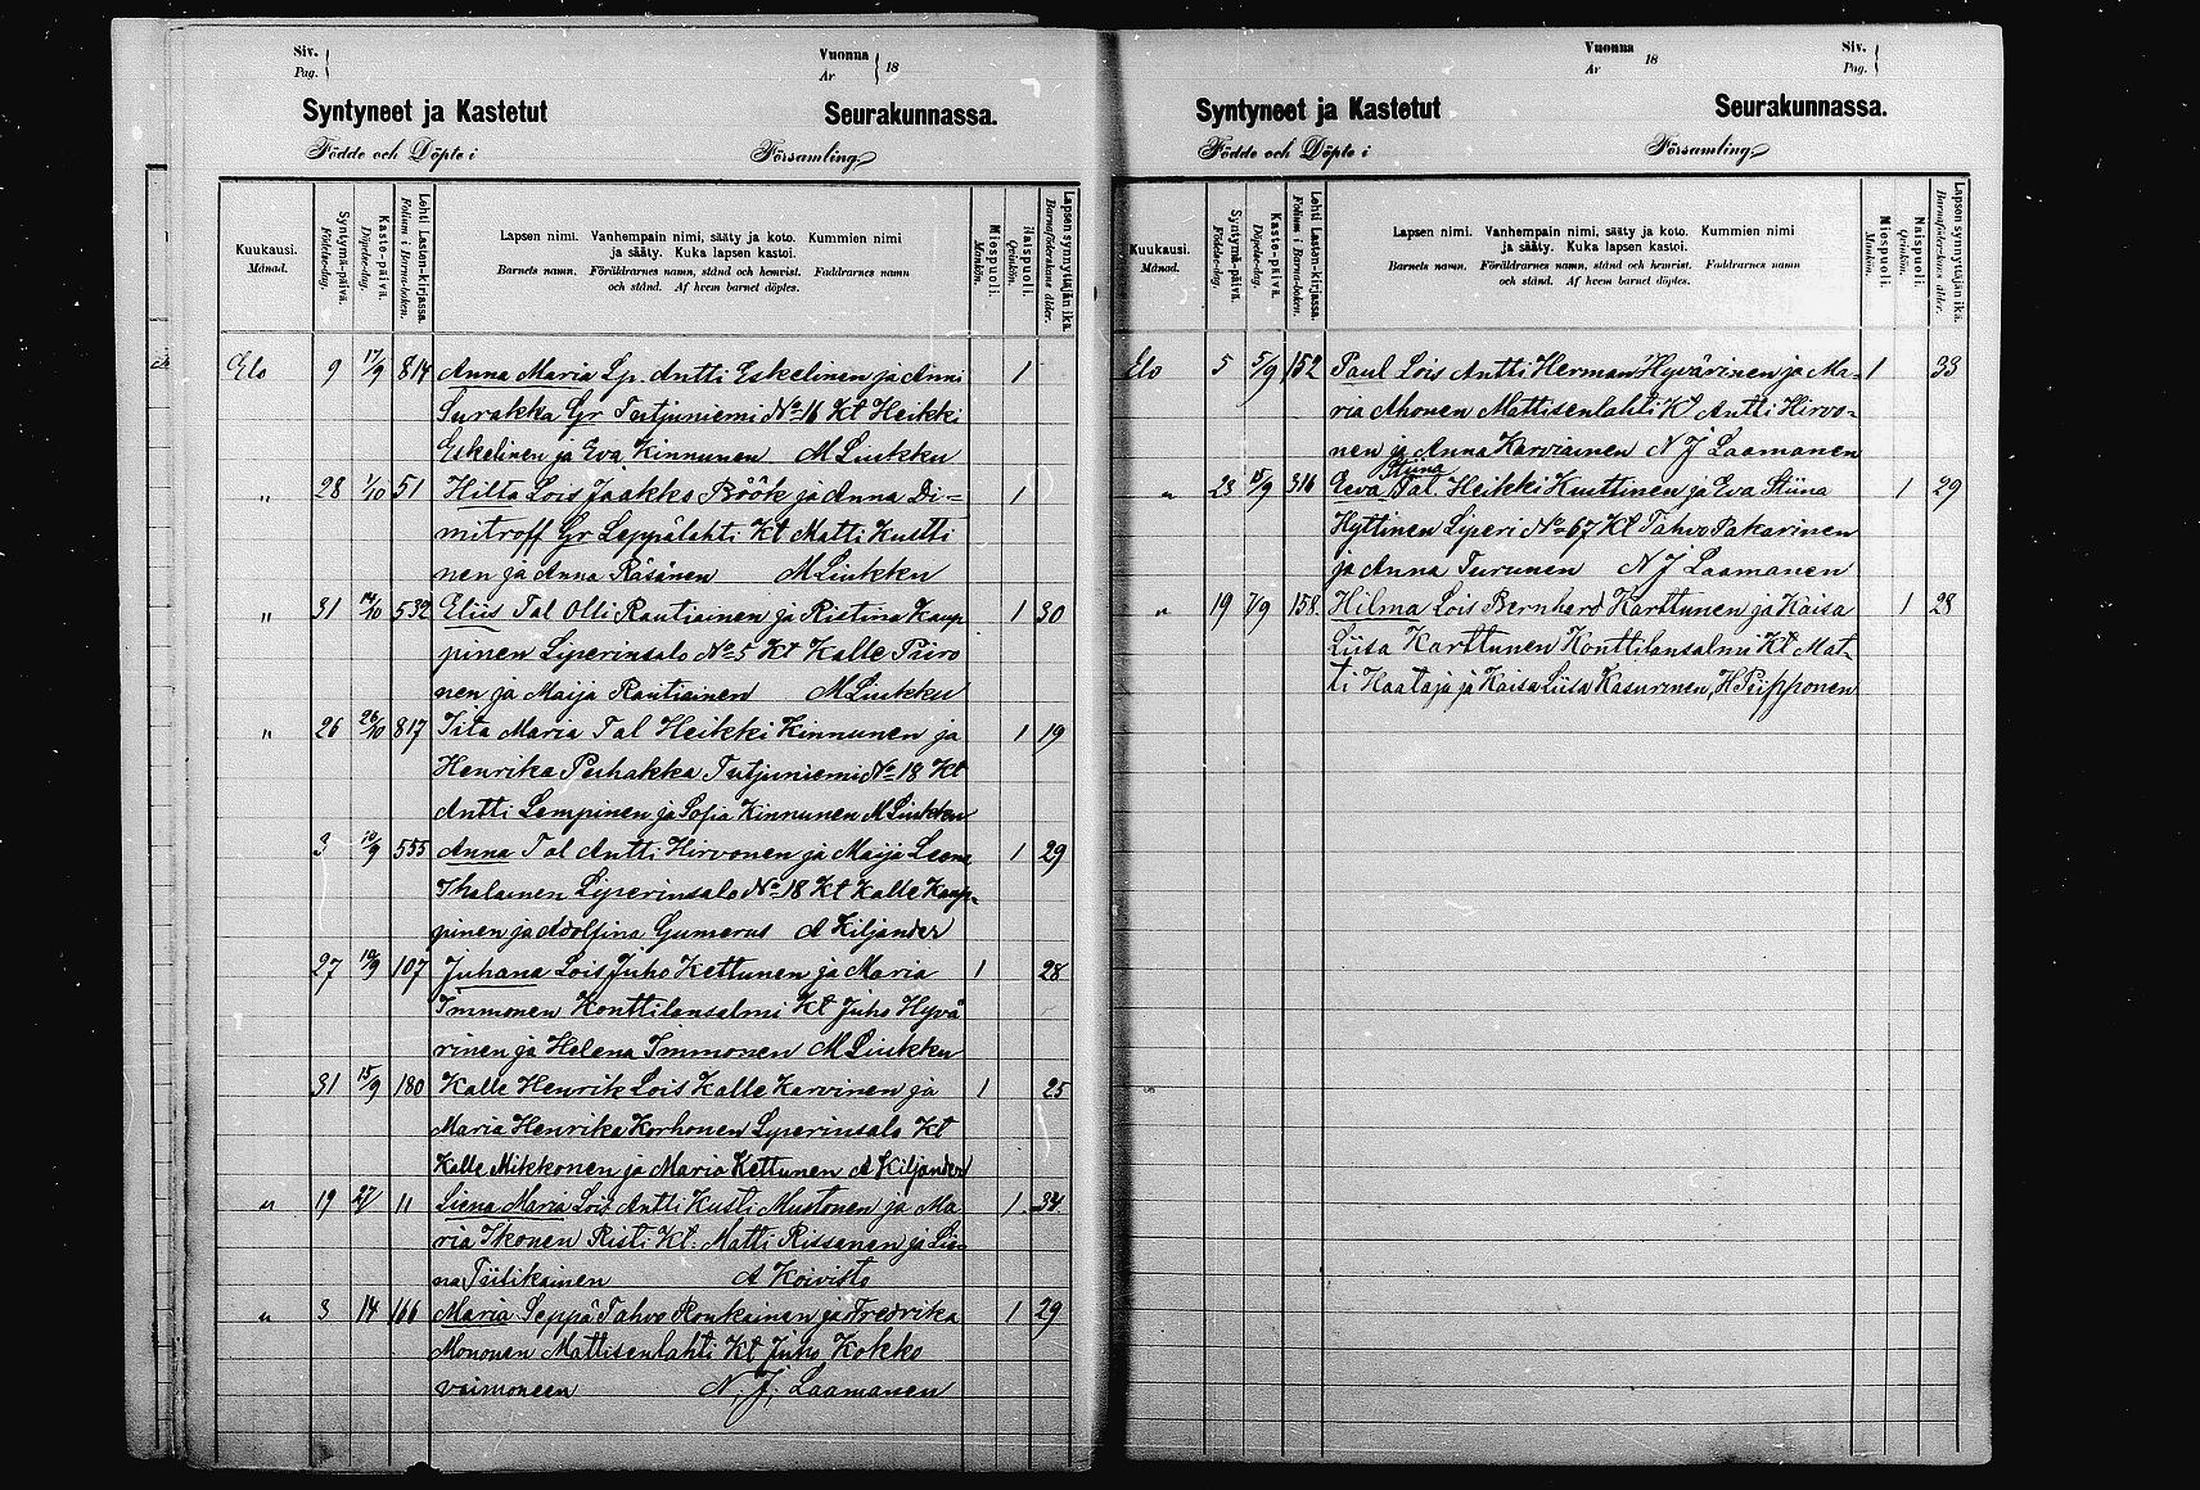 Siv.
Pag.
Vuonna
År
18
Syntyneet ja Kastetut Seurakunnassa.
Födde och Döpte i Församling.
Kuukausi.
Månad.
Syntymä-päivä.
Födelse-dag.
Kaste-päivä.
Döpelse-dag.
Lehti Lasten-kirjassa.
Folium i Barna-boken.
Lapsen nimi. Vanhempain nimi, sääty ja koto. Kummien nimi
ja sääty. Kuka lapsen kastoi.
Barnets namn. Föräldrarnes namn, stånd och hemvist. Faddrarnes namn
och stånd. Af hvem barnet döptes.
Miespuoli.
Mankön.
Naispuoli.
Qvinkön.
Lapsen synnyttäjän ikä.
Barnaföderskans ålder.
Elo 9 17/9 814 Anna Maria Lp. Antti Eskelinen ja Anni 1
Surakka Gr Tutjuniemi No 16 Kt Heikki
Eskelinen ja Eva Kinnunen M Liukku
" 28 1/10 51 Hilta Lois Jaakko Böök ja Anna Di= 1
mitroff Gr Leppälahti Kt Matti Kustti
nen ja Anna Räsänen M Liukku
" 31 14/10 532 Eliis Tal Olli Rautiainen ja Ristina Kaup 1 30
pinen Liperinsalo No 5 Kt Kalle Piiro
nen ja Maija Rautiainen M Liukku
" 26 26/10 817 Iita Maria Tal Heikki Kinnunen ja 1 19
Henrika Puhakka Tutjuniemi No 18 Kt
Antti Lempinen ja Sofia Kinnunen M Liukku
3 10/9 555 Anna Tal Antti Hirvonen ja Maija Leena 1 29
Ihalainen Liperinsalo No 18 Kt Kalle Kaup-
pinen ja Adolfina Gumerus A Kiljander
27 19/9 107 Juhana Lois Juho Kettunen ja Maria 1 28
Immonen Konttilansalmi Kt Juho Hyvä
rinen ja Helena Immonen M Liukku
31 15/9 180 Kalle Henrik Lois Kalle Karvinen ja 1 25
Maria Henrika Korhonen Lyperinsalo Kt
Kalle Mikkonen ja Maria Kettunen A Kiljander
" 19 27/ 11 Liena Maria Lois Antti Kusti Mustonen ja Ma 1 34
ria Ikonen Risti Kt. Matti Rissanen ja Lie-
na Tiilikainen A Koivisto
" 3 14 166 Maria Seppä Tahvo Ronkainen ja Fredrika 1 29
Mononen Mattisenlahti Kt Juho Kokko
vaimoneen N. J. Laamanen
Vuonna
År
18
Siv.
Pag.
Syntyneet ja Kastetut Seurakunnassa.
Födde och Döpte i Församling.
Kuukausi.
Månad.
Syntymä-päivä.
Födelse-dag.
Kaste-päivä.
Döpelse-dag.
Lehti Lasten-kirjassa.
Folium i Barna-boken.
Lapsen nimi. Vanhempain nimi, sääty ja koto. Kummien nimi
ja sääty. Kuka lapsen kastoi.
Barnets namn. Föräldrarnes namn, stånd och hemvist. Faddrarnes namn
och stånd. Af hvem barnet döptes.
Miespuoli.
Mankön.
Naispuoli.
Qvinkön.
Lapsen synnyttäjän ikä.
Barnaföderskans ålder.
Elo 5 5/9 152 Paul Lois Antti Herman Hyvärinen ja Ma- 1 33
ria Ahonen Mattisenlahti Kt Antti Hirvo-
nen ja Anna Karviainen N J Laamanen
Stiina
" 23 15/9 316 Eeva Tal. Heikki Kuittinen ja Eva Stiina 1 29
Hyttinen Liperi No 67 Kt Tahvo Pakarinen
ja Anna Turunen N J Laamanen
" 19 7/9 158. Hilma Lois Bernhard Karttunen ja Kaisa 1 28
Liisa Karttunen Konttilansalmi Kt Mat-
ti Haataja ja Kaisa Liisa Kasurinen, H Piipponen